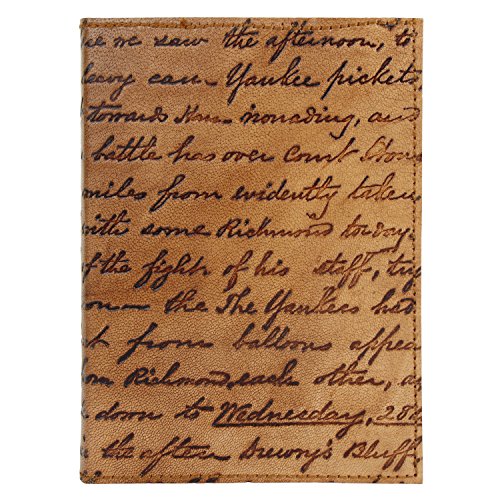 we saw the afternoon, to
heavy can- Yankee pickets,
towards nonading, and
battle has over Court Stone
miles from evidently taken
with some Richmond today.
of the fight of his staff, try
on- the The Yankees had
from balloons appea
Richmond, each other, a
down to Wednesday, 28th
the after Drewry's Bluff